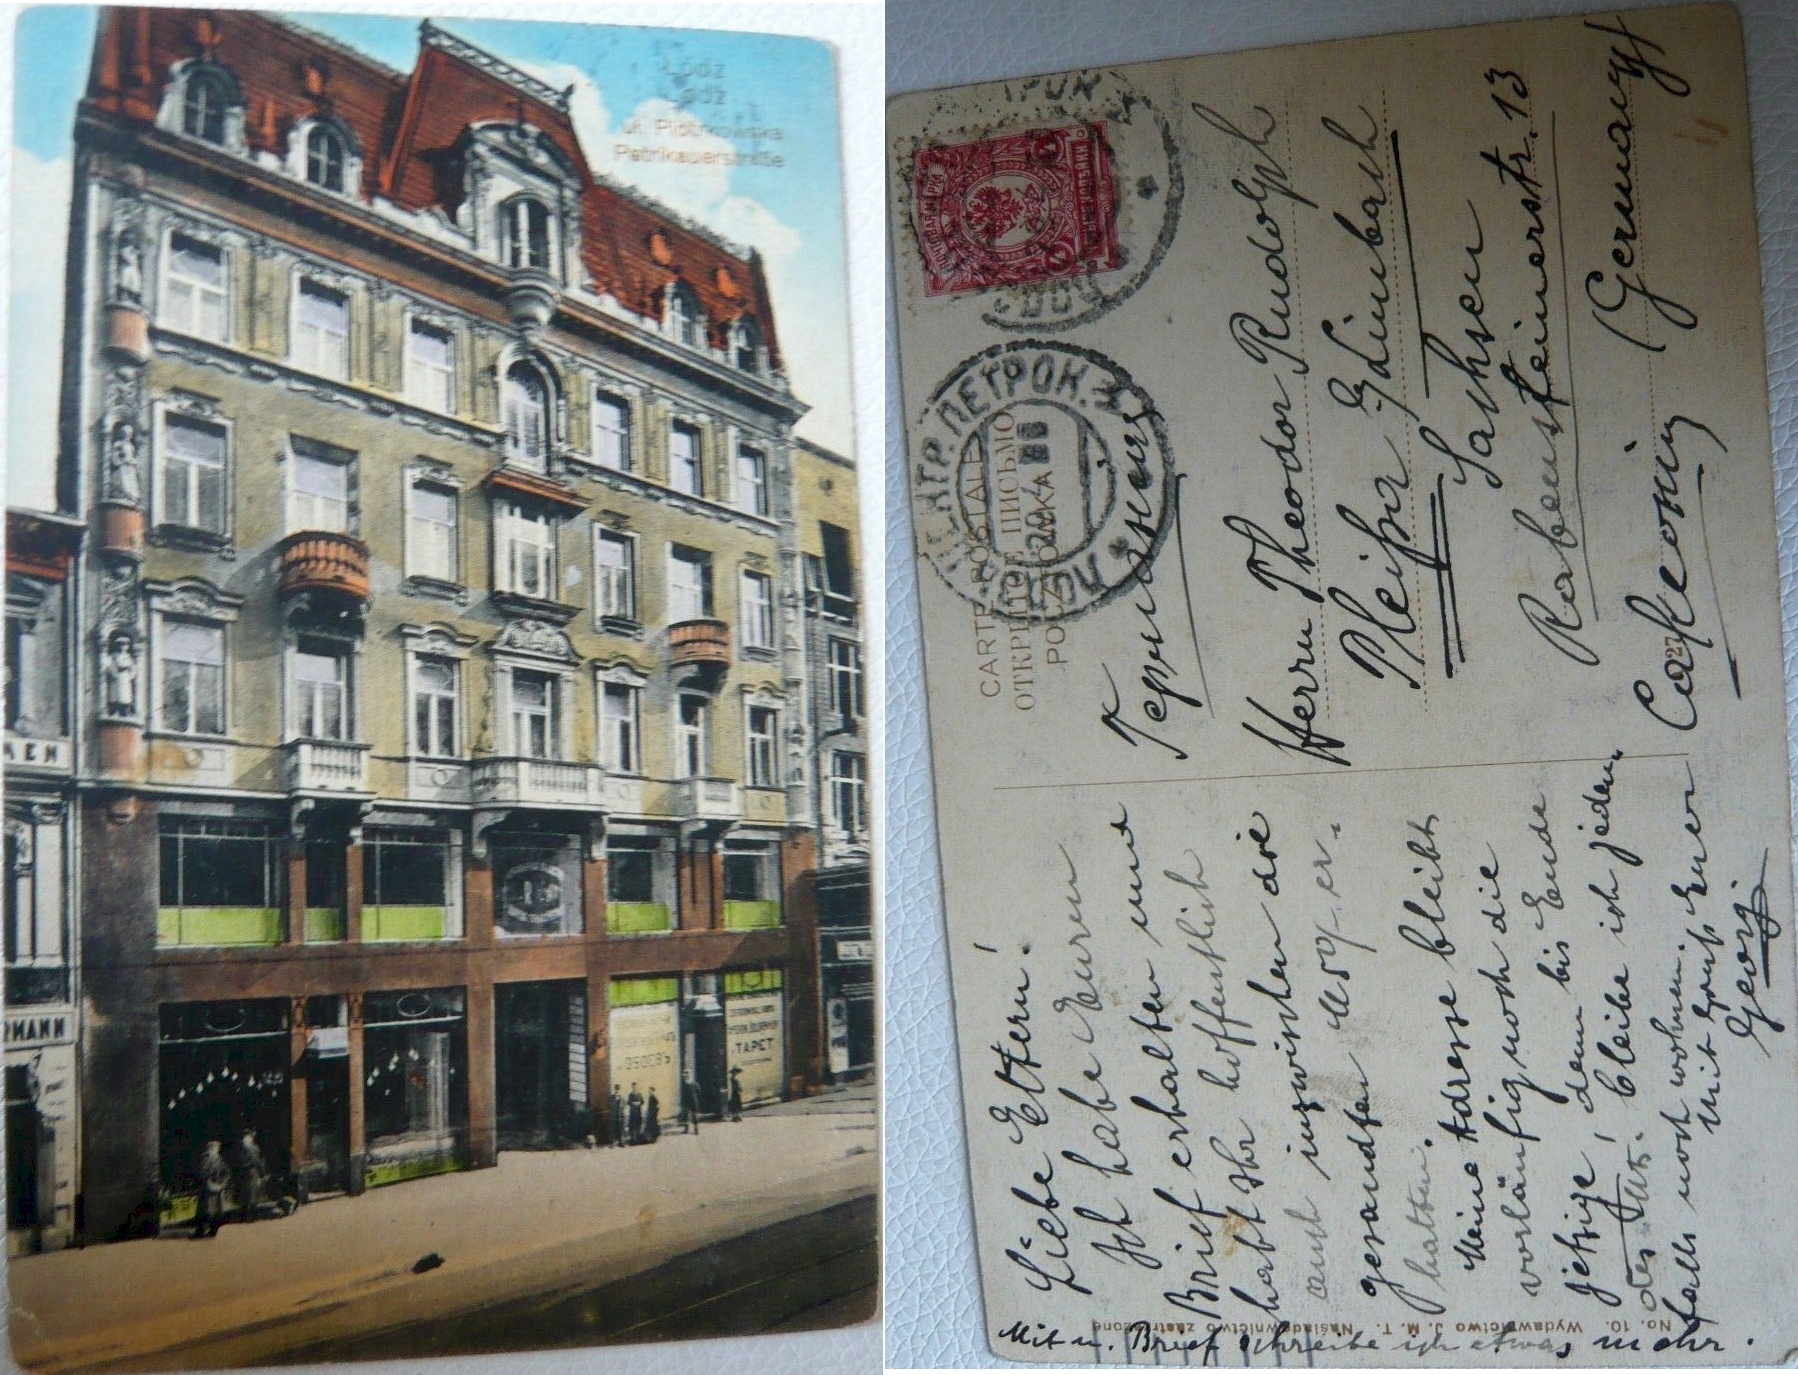 Łódź
Lodź
ul. Piotrkowska
Petrikauerstraße
MEN
RMANN
TAPET
CARTE POSTALE
ОТКРЫТОЕ ПИСЬМО
POCZTÓWKA
ПЕТРОК.
Германія
Herrn Theodor Rudolph
Pleißa Grünbach
Sachsen
Rabensteinerstr. 13
Саксонія (Germany)
27
Liebe Eltern!
Ich habe Euren
Brief erhalten und
habt Ihr hoffentlich
auch inzwischen die
gesandten M 50,- er-
halten.
Meine Adresse bleibt
vorläufig noch die
jetzige, denn bis Ende
des Mts. bleibe ich jeden
falls noch wohnen.
Mit Gruß Euer
Georg
Mit n. Brief schreibe ich etwas mehr.
No. 10. Wydawnictwo J. M. T. Naśladownictwo zastrzeżone